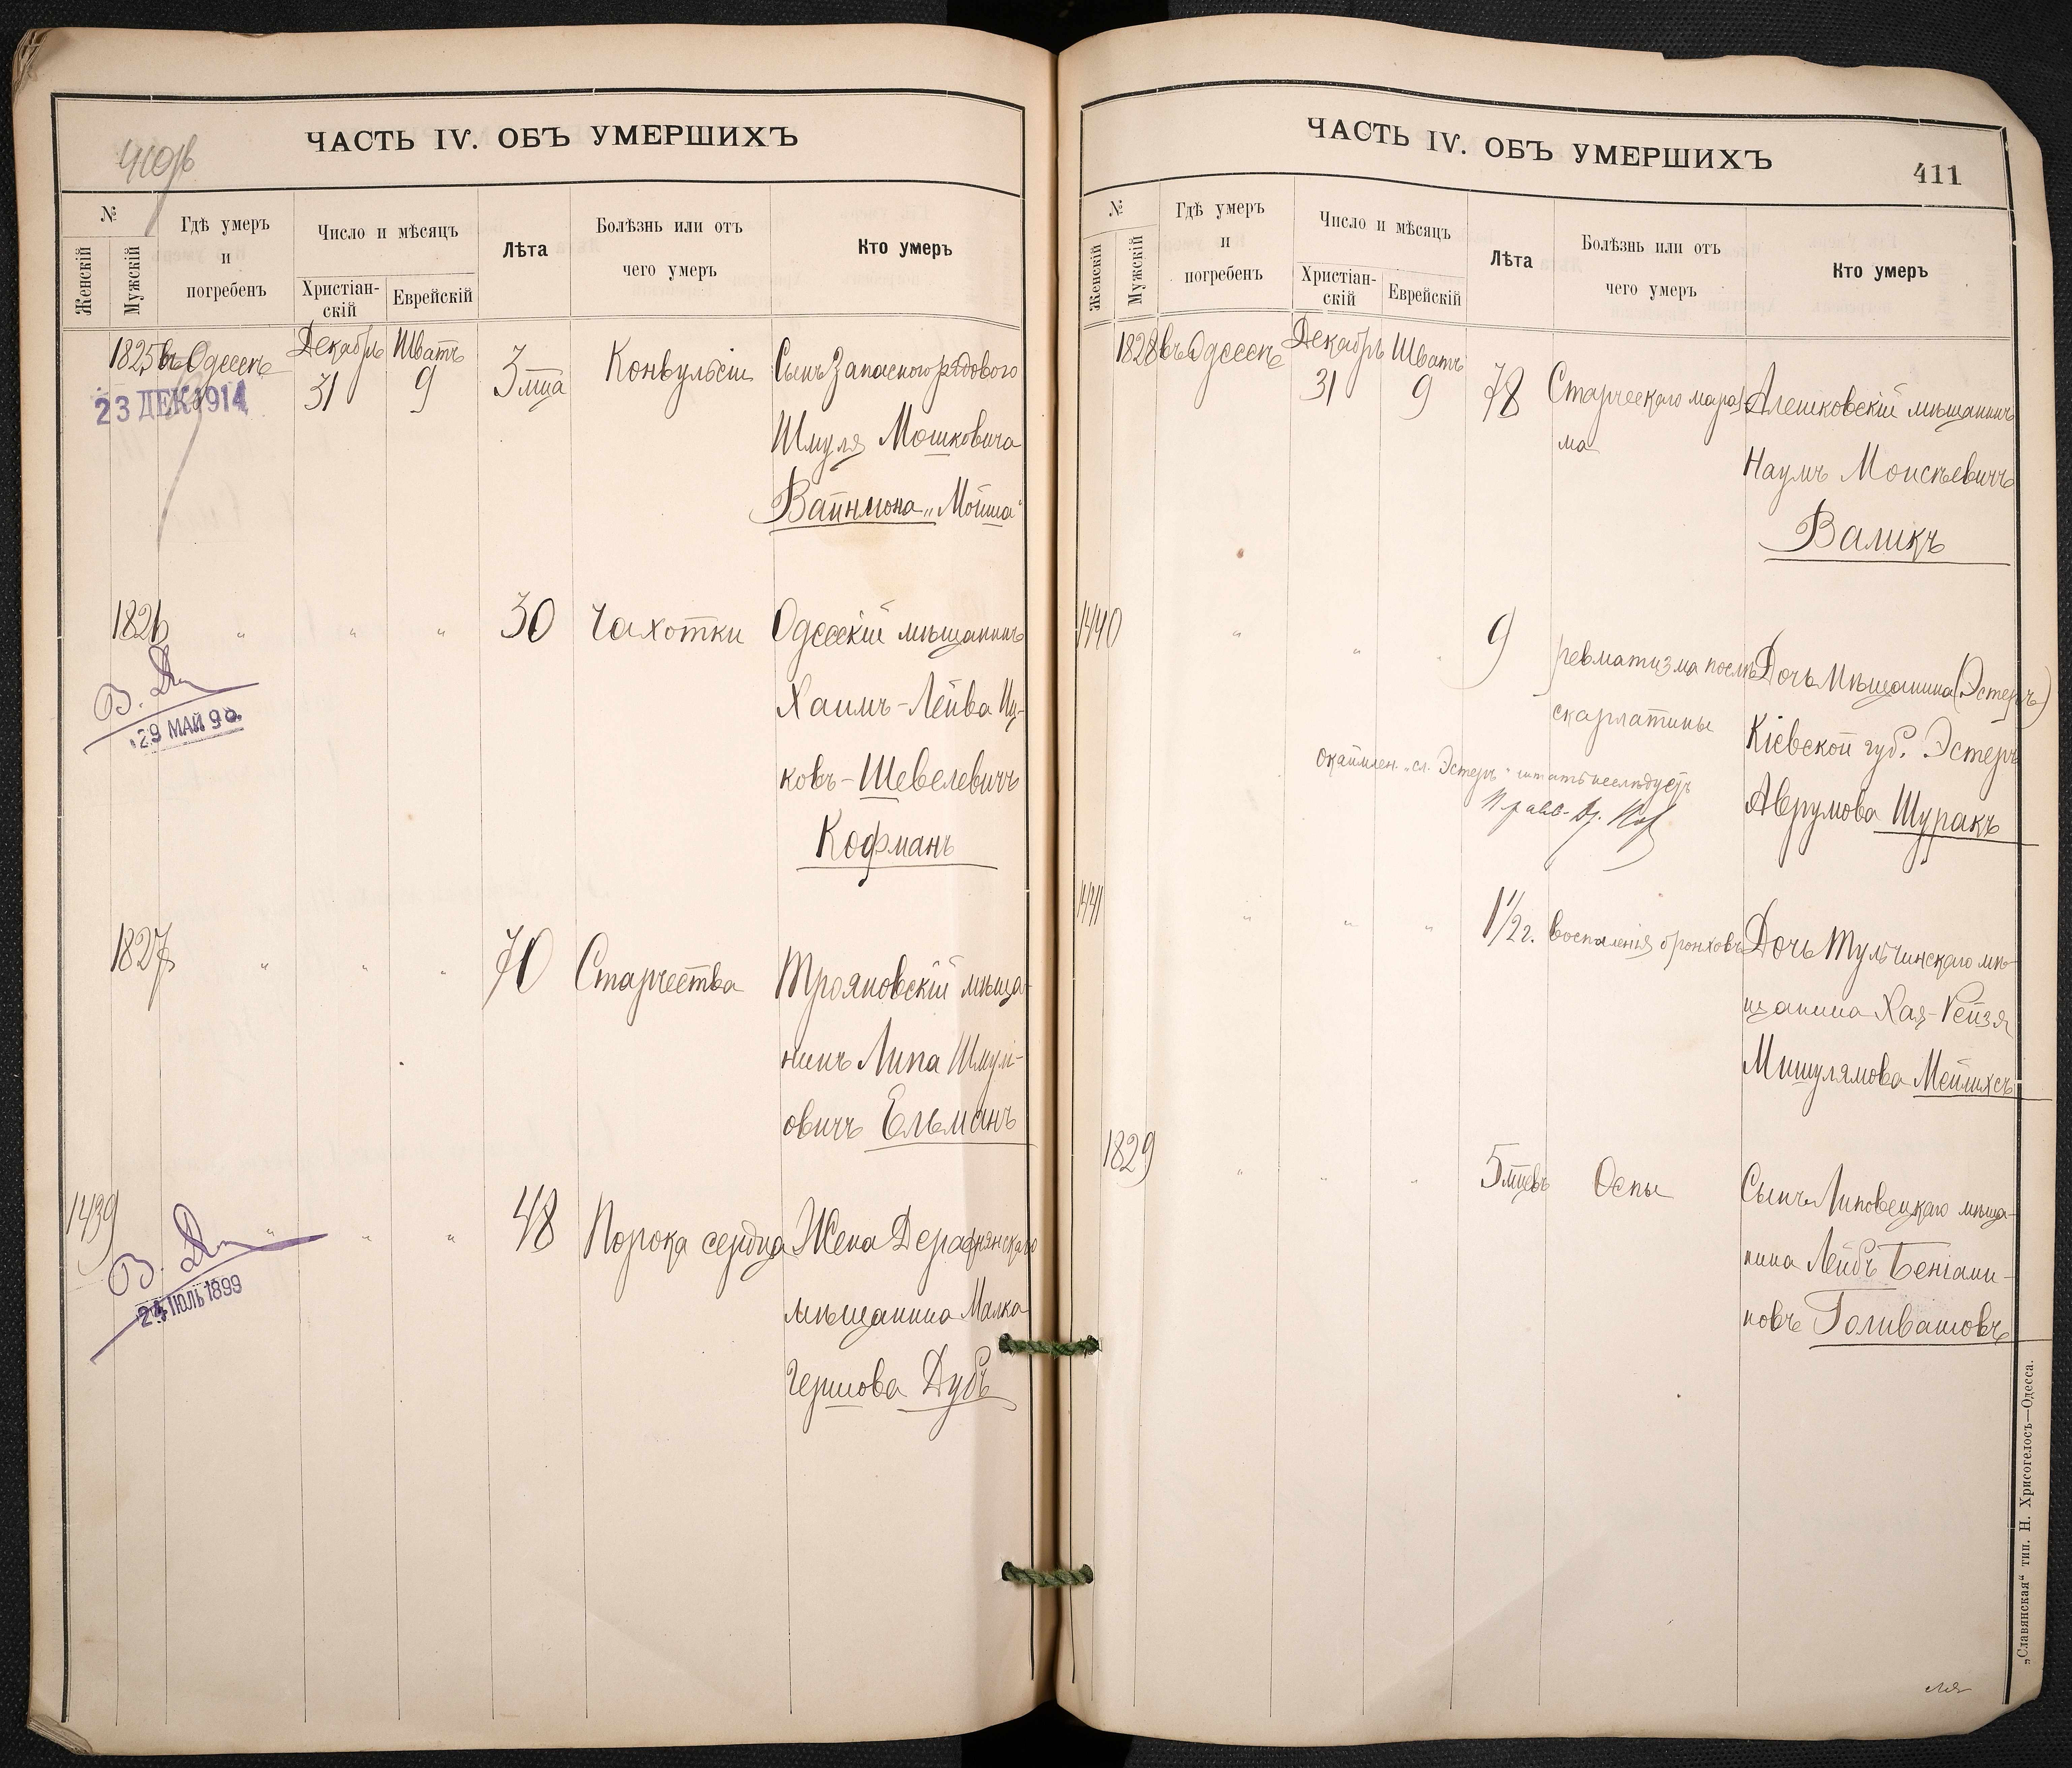 410об
ЧАСТЬ IV. ОБЪ УМЕРШИХЪ
№
Женскій
Мужскій
Гдѣ умеръ
и
погребенъ
Число и мѣсяцъ
Христіан-
скій
Еврейскій
Лѣта
Болѣзнь или отъ
чего умеръ
Кто умеръ
1825 въ Одессѣ Декабрь 31 Шватъ 9 3 мца Конвульсіи Сынъ Запаснаго рядового
23 ДЕК 1914
Шмуля Мошковича
Вайнмона „Мойша“
1826 " " " 30 Чахотки Одесскій мѣщанинъ
29 МАЙ 98
Хаимъ-Лейва Иц-
ковъ-Шевелевичъ
Кофманъ
1827 " " " 70 Старчества Трояновскій мѣща-
нинъ Липа Шмуль-
овичъ Ельманъ
1439 " " " 48 Порока сердца Жена Деражнянскаго
24 ІЮЛЬ 1899
мѣщанина Малка
Гершова Дубъ
ЧАСТЬ IV. ОБЪ УМЕРШИХЪ
411
№
Женскій
Мужскій
Гдѣ умеръ
и
погребенъ
Число и мѣсяцъ
Христіан-
скій
Еврейскій
Лѣта
Болѣзнь или отъ
чего умеръ
Кто умеръ
1828 въ Одессѣ Декабрь 31 Шватъ 9 78 Старческаго мараз- Алешковскій мѣщанинъ
ма
Наумъ Моисѣевичъ
Валикъ
1440 " " " 9 ревматизма послѣ Дочь Мѣщанина (Эстеръ)
скарлатины Кіевской губ. Эстеръ
окаймлен. „сл. Эстеръ“ читать не слѣдуетъ
Аврумова Шуракъ
1441 " " " 1 1/2 г. воспаленія бронховъ Дочь Тульчинскаго мѣ-
щанина Хая-Рейзя
Мишулямова Мейлихсъ
1829 " " " 5 мцевъ Оспы Сынъ Липовецкаго мѣща-
нина Лейбъ Беніами-
новъ Голивашовъ
„Славянская“ тип. Н. Хрисогелосъ—Одесса.